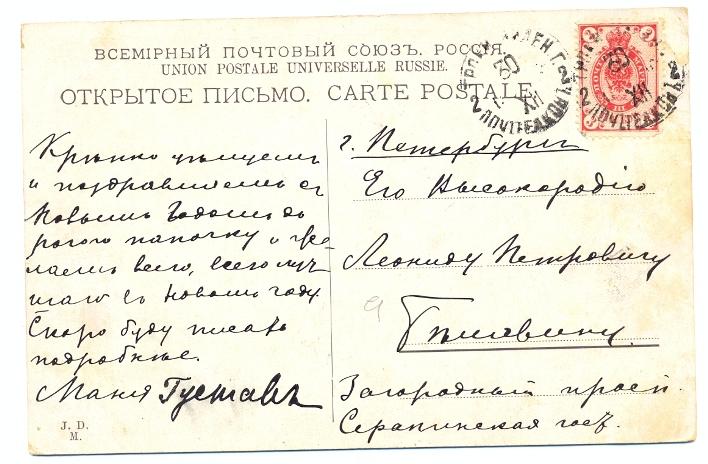 ВСЕМІРНЫЙ ПОЧТОВЫЙ СОЮЗЪ. РОССІЯ.
UNION POSTALE UNIVERSELLE RUSSIE.
ОТКРЫТОЕ ПИСЬМО. CARTE POSTALE.
Крѣпко цѣлуемъ
и поздравляемъ съ
Новымъ Годомъ до
рогого папочку и же
лаемъ всего, всего луч
шаго въ новомъ году.
Скоро буду писать
подробнѣе.
Маня Густавъ
г. Петербургъ
Его Высокородію
Леониду Петровичу
Загородный просп.
Серапинская гост.
J. D.
M.